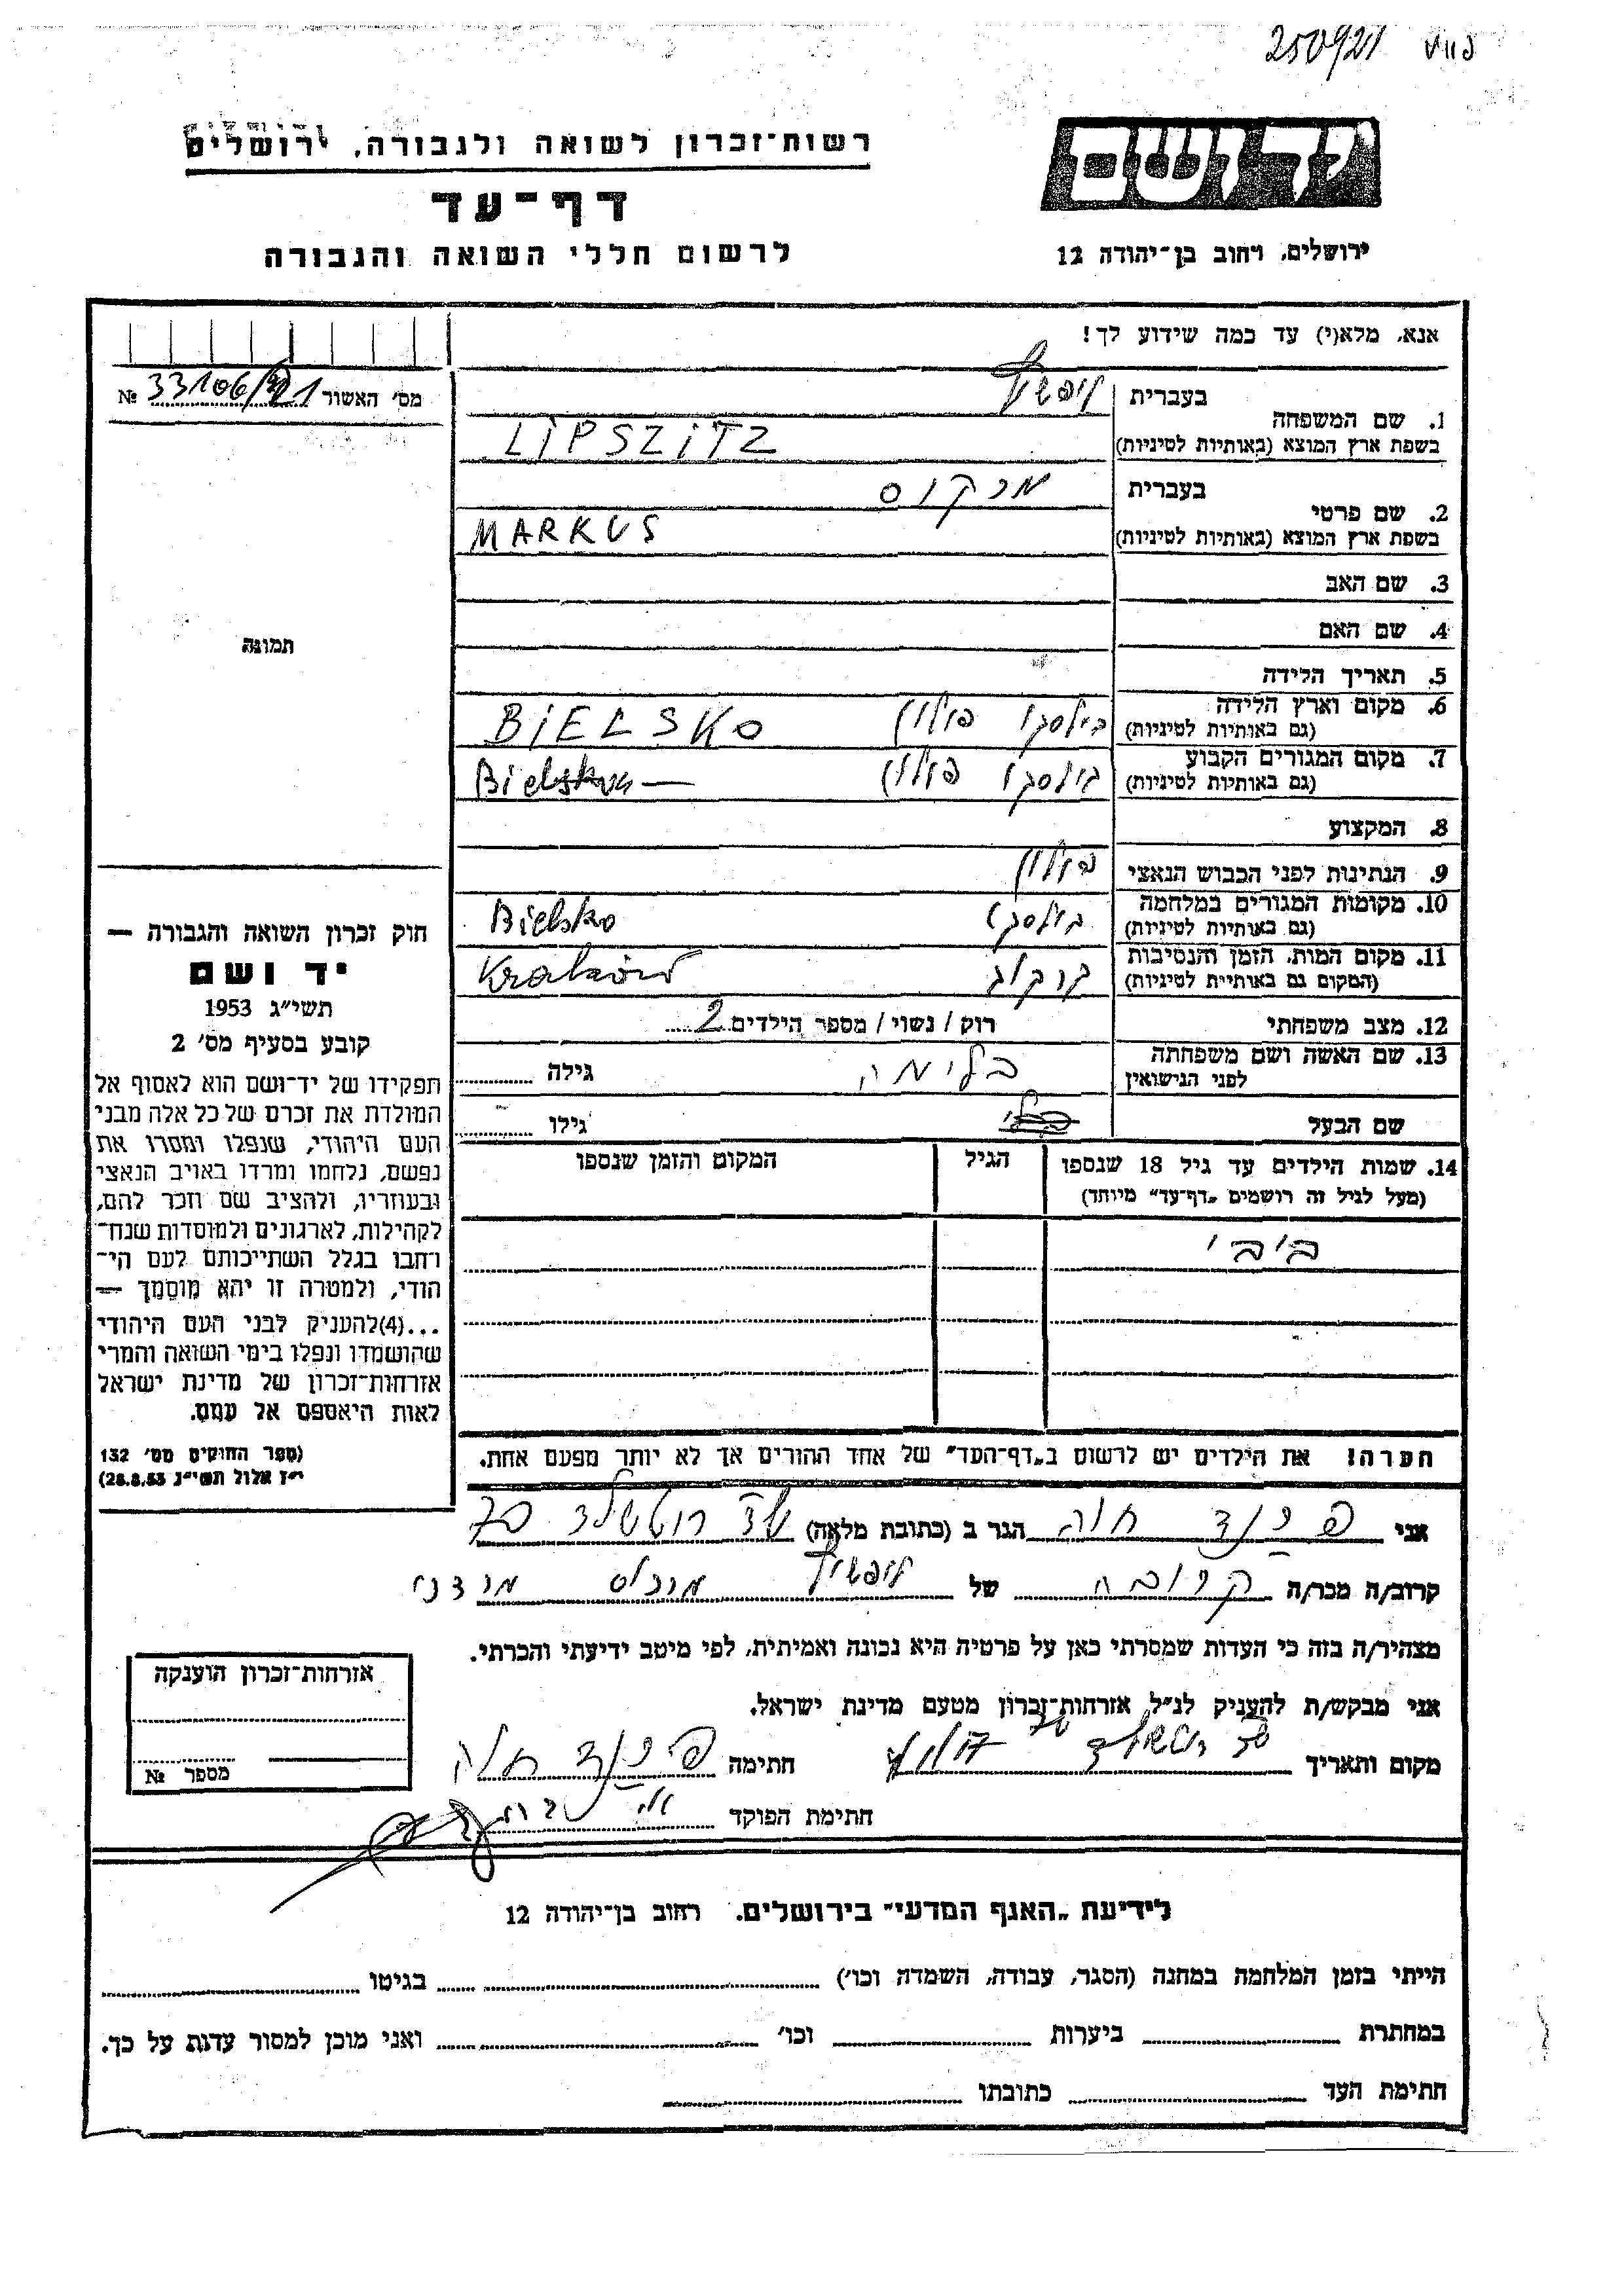 250921
יד ושם
רשות־זכרון לשואה ולגבורה, ירושלים
דף־עד
ירושלים, רחוב בן־יהודה 12
לרשום חללי השואה והגבורה
אנא, מלא(י) עד כמה שידוע לך!
מס׳ האשור № 33106/
1. שם המשפחה
בעברית ליפשיץ
בשפת ארץ המוצא (באותיות לטיניות) LiPSZiTZ
2. שם פרטי
בעברית מרקוס
בשפת ארץ המוצא (באותיות לטיניות) MARKUS
3. שם האב
4. שם האם
5. תאריך הלידה
6. מקום וארץ הלידה
(גם באותיות לטיניות) בילסקו פולין BiELSKO
7. מקום המגורים הקבוע
(גם באותיות לטיניות) בילסקו פולין
8. המקצוע
9. הנתינות לפני הכבוש הנאצי פולין
10. מקומות המגורים במלחמה
(גם באותיות לטיניות) בילסקו Bielsko
11. מקום המות, הזמן והנסיבות
(המקום גם באותיית לטיניות) קרקוב Kraków
12. מצב משפחתי רוק / נשוי / מספר הילדים 2
13. שם האשה ושם משפחתה
לפני הנישואין בלימה גילה
שם הבעל גילו
14. שמות הילדים עד גיל 18 שנספו הגיל המקום והזמן שנספו
(מעל לגיל זה רושמים „דף־עד״ מיוחד)
ביבי
הערה! את הילדים יש לרשום ב„דף־העד״ של אחד ההורים אך לא יותר מפעם אחת.
תמונה
חוק זכרון השואה והגבורה —
יד ושם
תשי״ג 1953
קובע בסעיף מס׳ 2
תפקידו של יד־ושם הוא לאסוף אל
המולדת את זכרם של כל אלה מבני
העם היהודי, שנפלו ומסרו את
נפשם, נלחמו ומרדו באויב הנאצי
ובעוזריו, ולהציב שם וזכר להם,
לקהילות, לארגונים ולמוסדות שנח־
רחבו בגלל השתייכותם לעם הי־
הודי, ולמטרה זו יהא מוסמך —
...(4)להעניק לבני העם היהודי
שהושמדו ונפלו בימי השואה והמרי
אזרחות־זכרון של מדינת ישראל
לאות היאספם אל עמם.
(ספר החוקים מס׳ 132
י״ז אלול תשי״ג 28.8.53)
אני חוה הגר ב (כתובת מלאה) שד רוטשילד 70
קרוב/ה מכר/ה קרובה של ליפשיץ
מצהיר/ה בזה כי העדות שמסרתי כאן על פרטיה היא נכונה ואמיתית, לפי מיטב ידיעתי והכרתי.
אני מבקש/ת להעניק לנ״ל אזרחות־זכרון מטעם מדינת ישראל.
מקום ותאריך חתימה חוה
חתימת הפוקד
אזרחות־זכרון הוענקה
מספר №
לידיעת „האגף המדעי״ בירושלים. רחוב בן־יהודה 12
הייתי בזמן המלחמה במחנה (הסגר, עבודה, השמדה וכו׳) בגיטו
במחתרת ביערות וכו׳ ואני מוכן למסור עדות על כך.
חתימת העד כתובתו